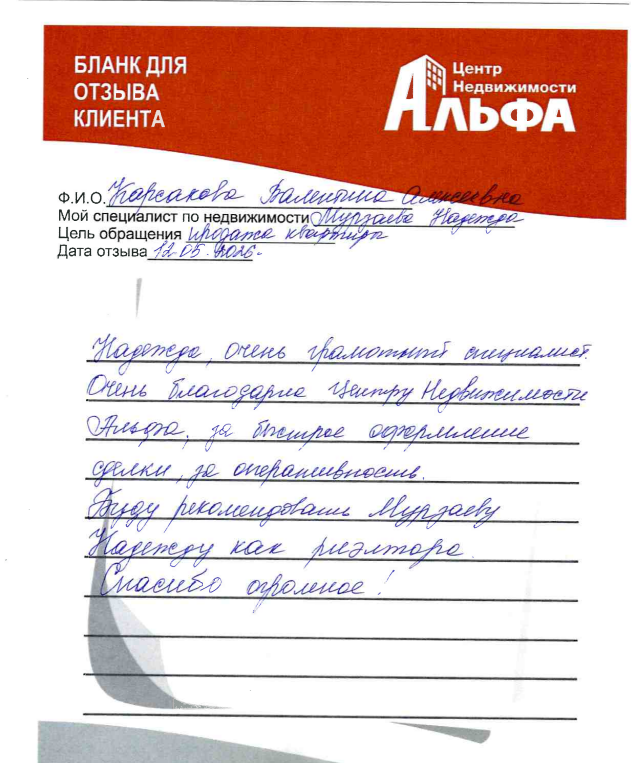 БЛАНК ДЛЯ
ОТЗЫВА
КЛИЕНТА
Центр
Недвижимости
АЛЬФА
Ф.И.О. Карсакова Валентина Алексеевна
Мой специалист по недвижимости Мурзаева Надежда
Цель обращения продажа квартиры
Дата отзыва 12.05.2026.
Надежда, очень грамотный специалист.
Очень благодарна Центру Недвижимости
Альфа, за быстрое оформление
сделки, за оперативность.
Буду рекомендовать Мурзаеву
Надежду как риэлтора.
Спасибо огромное!